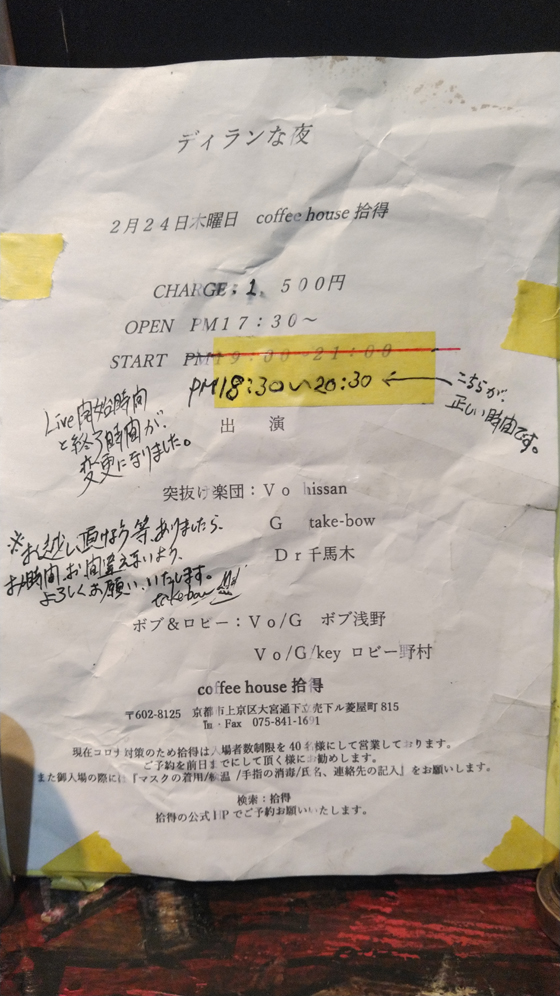 ディランな夜
2月24日木曜日　coffee house 拾得
CHARGE：1，500円
OPEN　PM17：30～
START　PM19：00～21：00
PM18：30～20：30 ←
こちらが、
正しい時間です。
Live開始時間
と終了時間が、
変更になりました。
出　演
突抜け楽団：Vo　hissan
G　take-bow
Dr 千馬木
※お越し頂けよう等、ありましたら、
お時間、お間違えないよう、
よろしくお願いいたします。
take-bow
ボブ＆ロビー：Vo/G　ボブ浅野
Vo/G/key　ロビー野村
coffee house 拾得
〒602-8125　京都市上京区大宮通下立売下ル菱屋町 815
℡・Fax　075-841-1691
現在コロナ対策のため拾得は入場者数制限を 40 名様にして営業しております。
ご予約を前日までにして頂く様にお勧めします。
また御入場の際には『マスクの着用/検温 /手指の消毒/氏名、連絡先の記入』をお願いします。
検索：拾得
拾得の公式 HP でご予約お願いいたします。